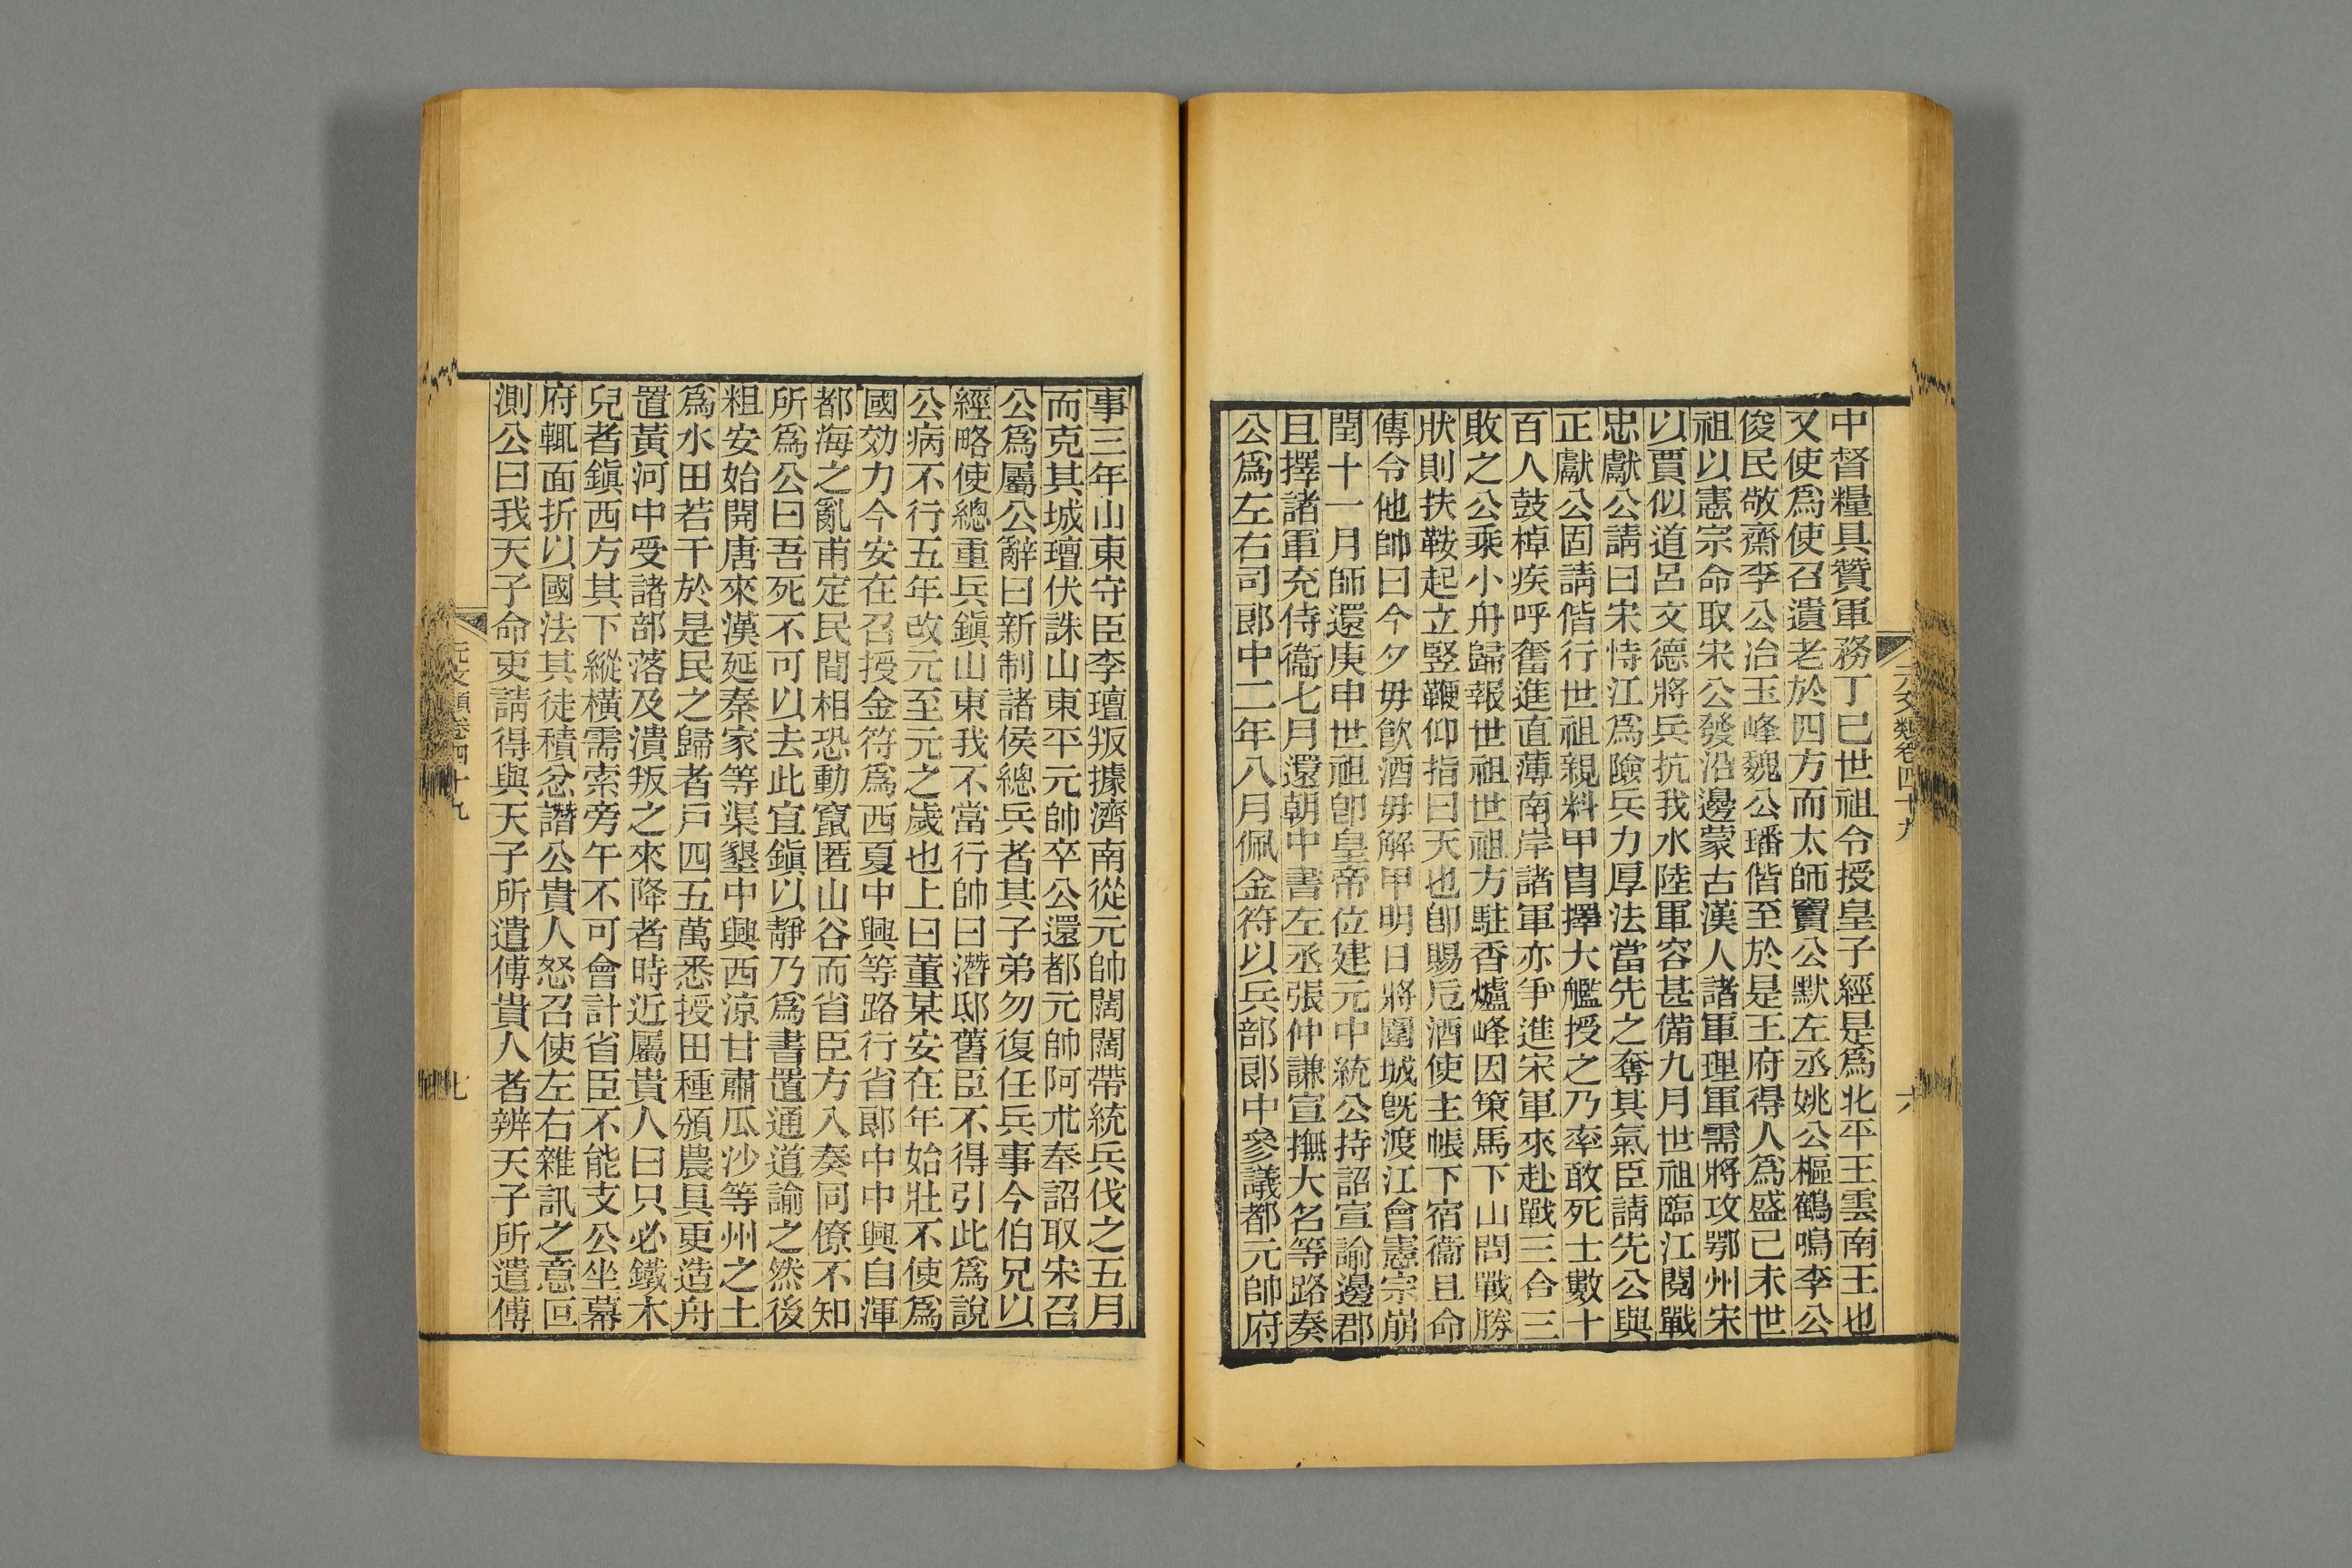 元文類卷四十九
六
中督糧具贊軍務丁巳世祖令授皇子經是爲北平王雲南王也
又使爲使召遺老於四方而太師竇公默左丞姚公樞鶴鳴李公
俊民敬齋李公冶玉峰魏公璠偕至於是王府得人爲盛己未世
祖以憲宗命取宋公發沿邊蒙古漢人諸軍理軍需將攻鄂州宋
以賈似道呂文德將兵抗我水陸軍容甚備九月世祖臨江閱戰
忠獻公請曰宋恃江爲險兵力厚法當先之奪其氣臣請先公與
正獻公固請偕行世祖親料甲冑擇大艦授之乃率敢死士數十
百人鼓棹疾呼奮進直薄南岸諸軍亦爭進宋軍來赴戰三合三
敗之公乘小舟歸報世祖世祖方駐香爐峰因策馬下山問戰勝
狀則扶鞍起立竪鞭仰指曰天也卽賜卮酒使主帳下宿衞且命
傳令他帥曰今夕毋飮酒毋解甲明日將圍城旣渡江會憲宗崩
閏十一月師還庚申世祖卽皇帝位建元中統公持詔宣諭邊郡
且擇諸軍充侍衞七月還朝中書左丞張仲謙宣撫大名等路奏
公爲左右司郎中二年八月佩金符以兵部郎中參議都元帥府
事三年山東守臣李璮叛據濟南從元帥闊闊帶統兵伐之五月
而克其城璮伏誅山東平元帥卒公還都元帥阿朮奉詔取宋召
公爲屬公辭曰新制諸侯總兵者其子弟勿復任兵事今伯兄以
經略使總重兵鎭山東我不當行帥曰潛邸舊臣不得引此爲說
公病不行五年改元至元之歲也上曰董某安在年始壯不使爲
國効力今安在召授金符爲西夏中興等路行省郎中中興自渾
都海之亂甫定民間相恐動竄匿山谷而省臣方入奏同僚不知
所爲公曰吾死不可以去此宜鎭以靜乃爲書置通道諭之然後
粗安始開唐來漢延秦家等渠墾中興西涼甘肅瓜沙等州之土
爲水田若干於是民之歸者戶四五萬悉授田種頒農具更造舟
置黃河中受諸部落及潰叛之來降者時近屬貴人曰只必鐵木
兒者鎭西方其下縱橫需索旁午不可會計省臣不能支公坐幕
府輒面折以國法其徒積忿譖公貴人怒召使左右雜訊之意叵
測公曰我天子命吏請得與天子所遣傅貴人者辨天子所遣傅
元文類卷四十九
七